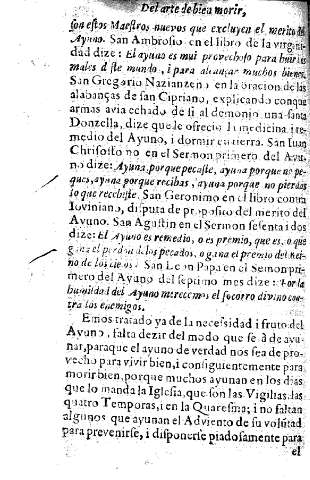 Del arte de bien morir,
son estos Maestros nuevos que excluyen el merito del
Ayuno. San Ambrosio en el libro de la virgini-
dad dize: El ayuno es mui provechoso para huir los
males deste mundo, i para alcançar muchos bienes.
San Gregorio Nazianzeno en la oracion de las
alabanças de san Cipriano, explicando con que
armas avia echado de si al demonio una santa
Donzella, dize que le ofrecio la medicina i re-
medio del Ayuno, i dormir en tierra. San Iuan
Chrisosto no en el Sermon primero del Ayu-
no dize: Ayuna, porque pecaste, ayuna porque no pe-
ques, ayuna porque recibas, ayuna porque no pierdas
lo que recebiste. San Geronimo en el libro contra
Ioviniano, disputa de proposito del merito del
Ayuno. San Agustin en el Sermon sesenta i dos
dize: El Ayuno es remedio, o es premio, que es, o que
gana el perdon de los pecados, o gana el premio del Rei-
no de los cielos. San Leon Papa en el Sermon pri-
mero del Ayuno del septimo mes dize: Por la
humildad del Ayuno merecemos el socorro divino con-
tra los enemigos.
Emos tratado ya de la necesidad i fruto del
Ayuno, falta dezir del modo que se à de ayu-
nar, para que el ayuno de verdad nos sea de pro-
vecho para vivir bien, i consiguientemente para
morir bien, porque muchos ayunan en los dias
que lo manda la Iglesia, que son las Vigilias, las
quatro Temporas, i en la Quaresma; i no faltan
algunos que ayunan el Adviento de su volũtad
para prevenirse, i disponerse piadosamente para
el